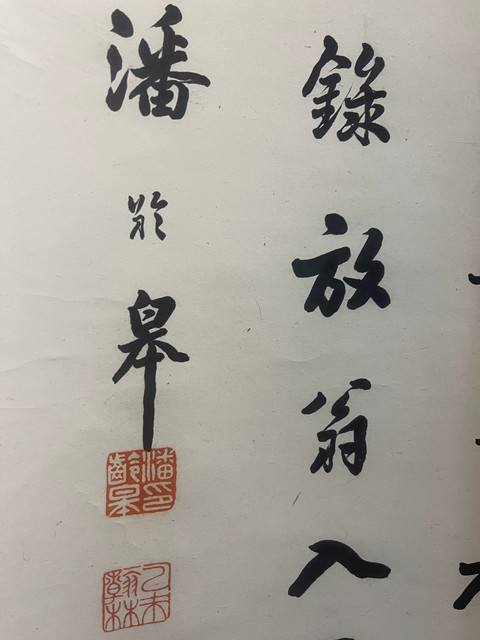 錄放翁入
潘齡皋
潘印齡皋
乙未翰林